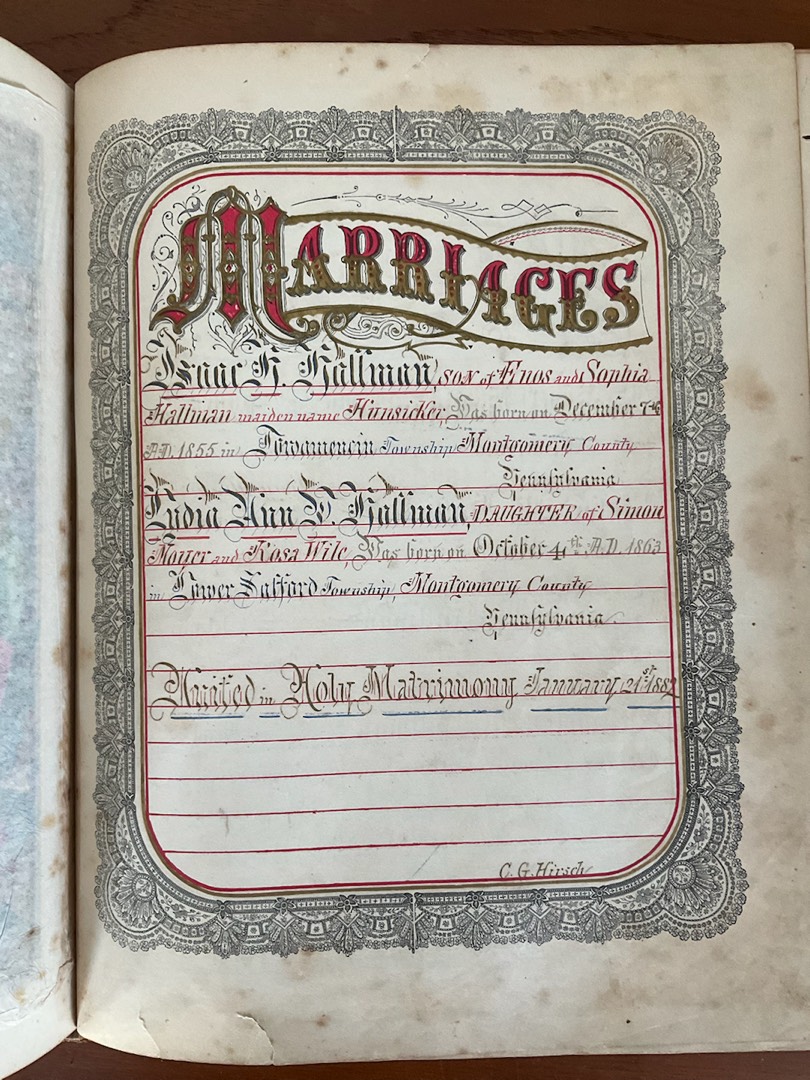 MARRIAGES
Isaac H. Hallman, SON of Enos and Sophia
Hallman maiden name Hunsicker, Was born on December 7th
A.D. 1855 in Towamencin Township Montgomery County
Pennsylvania
Lydia Ann W. Hallman, DAUGHTER of Simon
Moyer and Rosa Wile, Was born on October 4th A.D. 1863
in Lower Salford Township, Montgomery County
Pennsylvania
United in Holy Matrimony January 21st 1882
C. G. Hirsch